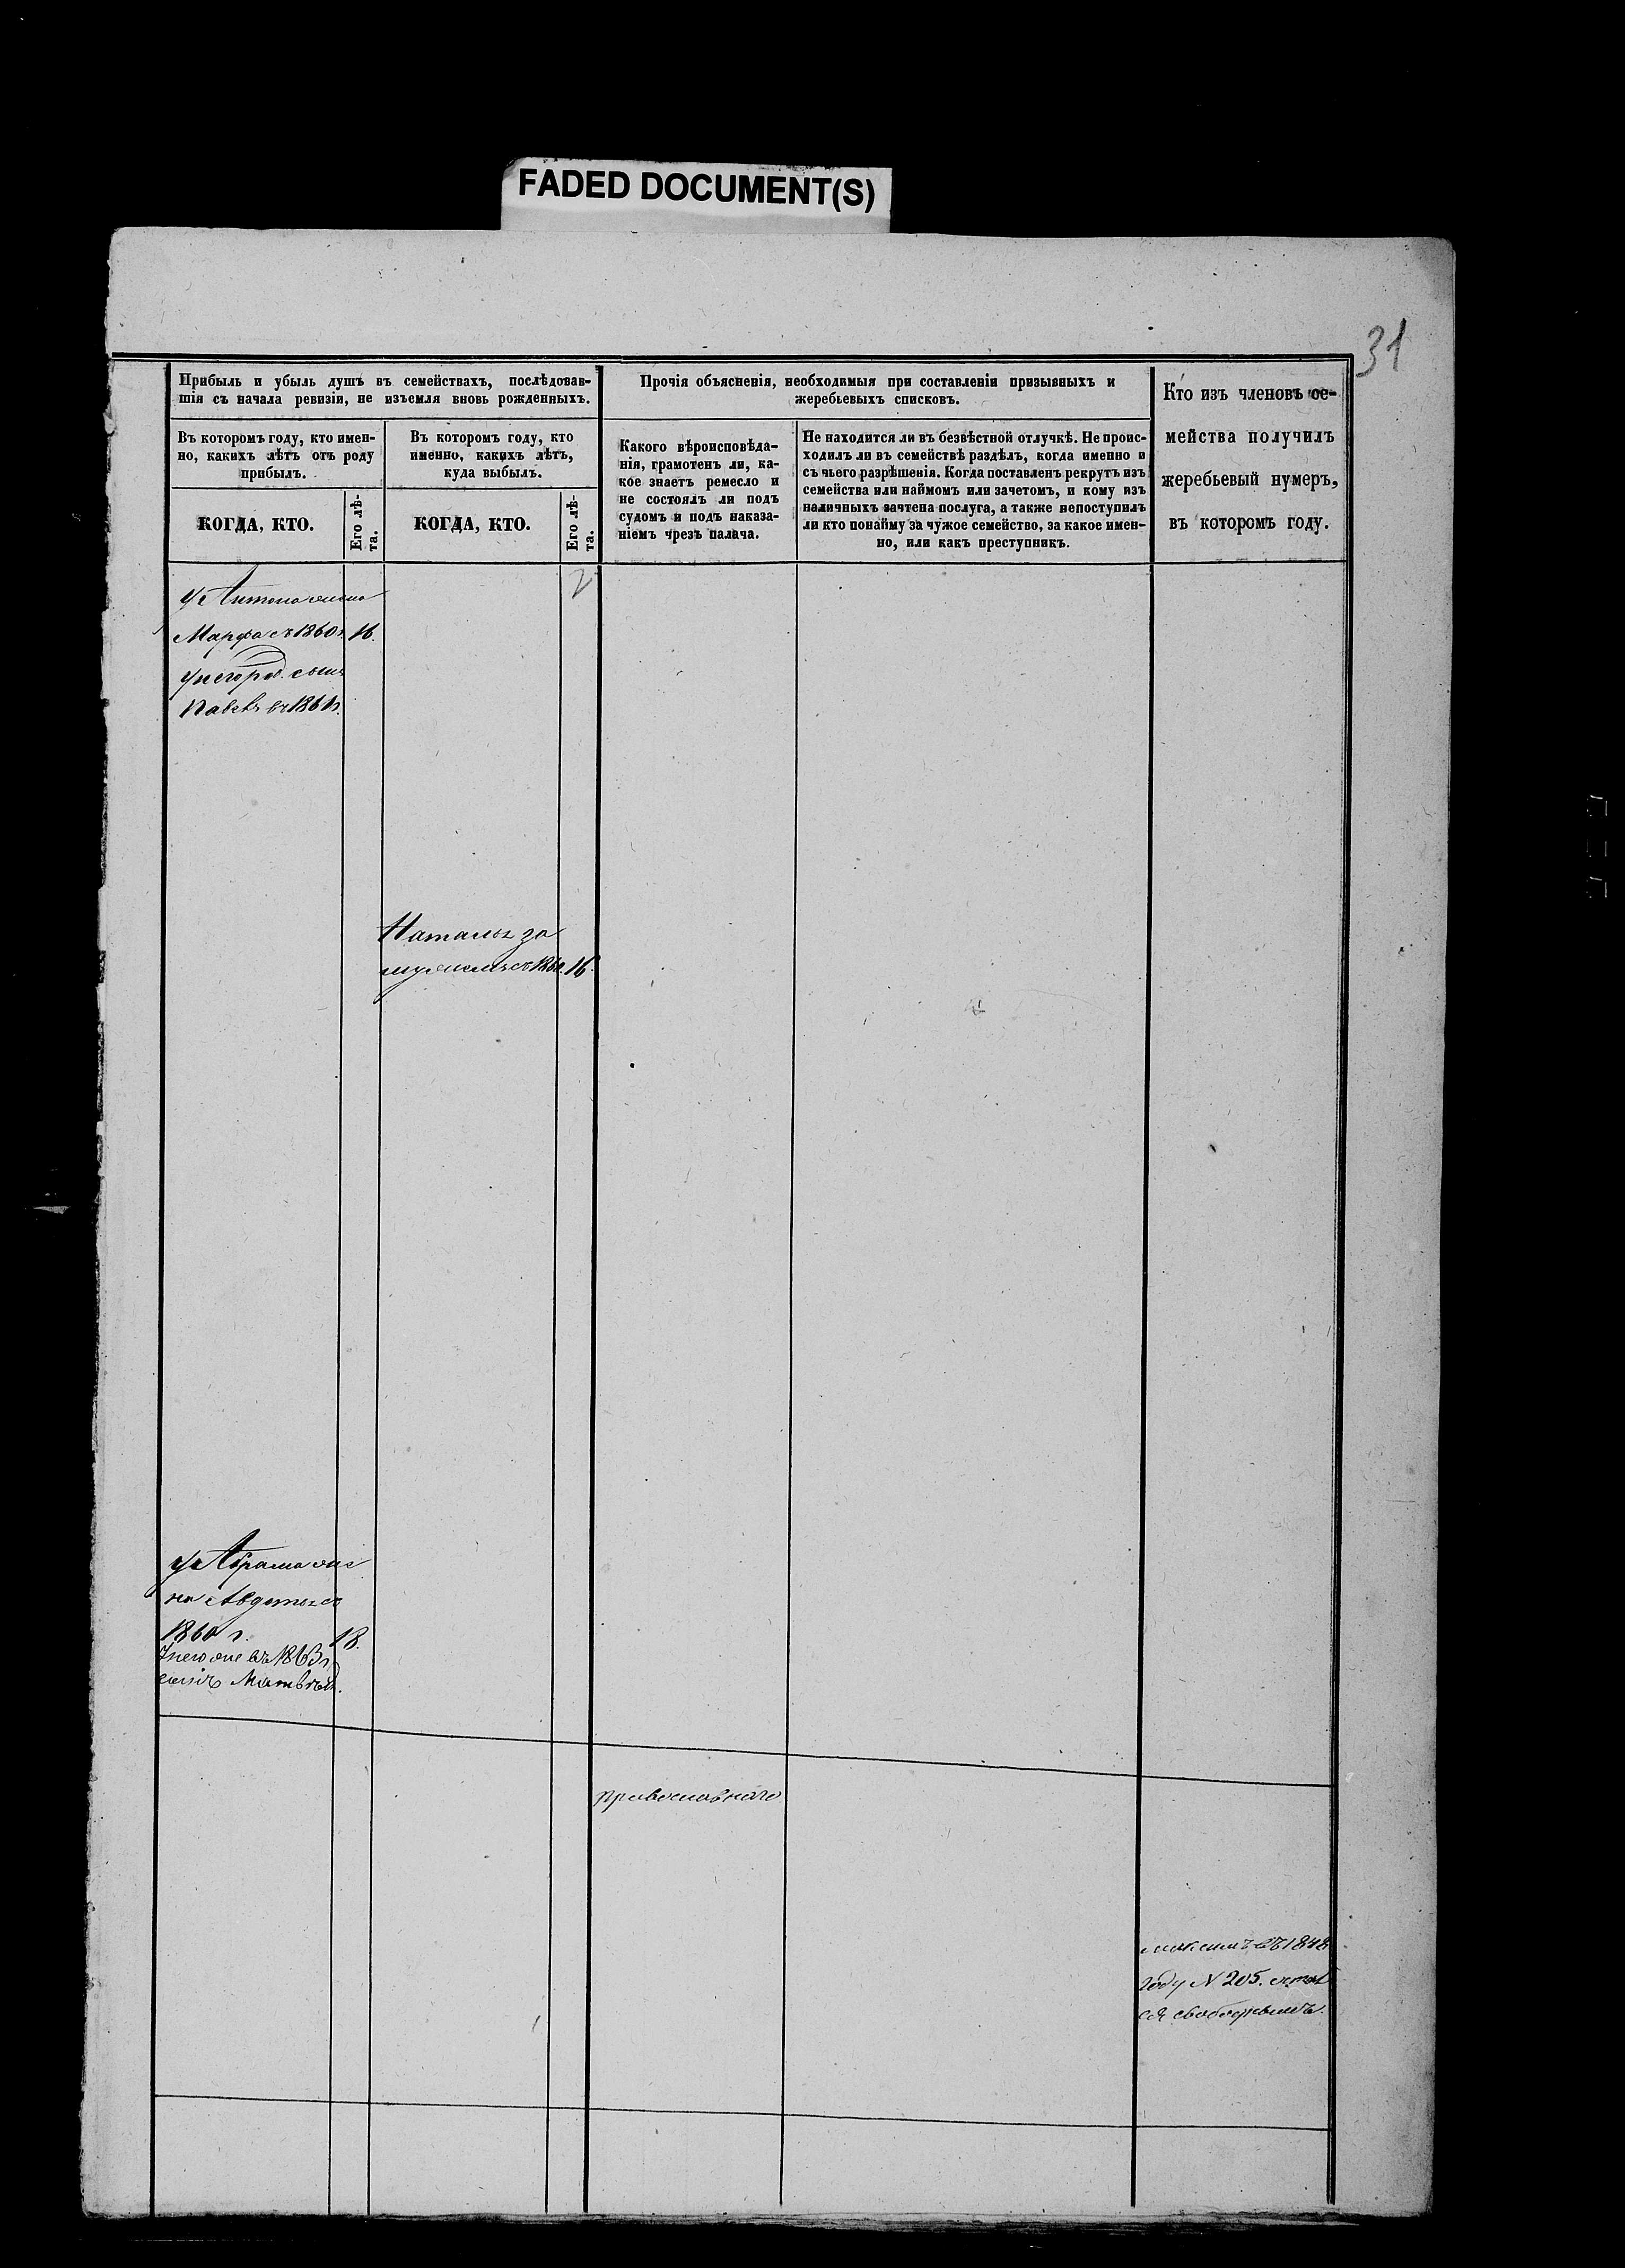 FADED DOCUMENT(S)
31
Прибыль и убыль душъ въ семействахъ, послѣдовав-
шія съ начала ревизіи, не изъемля вновь рожденныхъ.
Въ которомъ году, кто имен-
но, какихъ лѣтъ отъ роду
прибылъ.
КОГДА, КТО.
Его лѣ-
та.
Въ которомъ году, кто
именно, какихъ лѣтъ,
куда выбылъ.
КОГДА, КТО.
Его лѣ-
та.
Прочія объясненія, необходимыя при составленіи призывныхъ и
жеребьевыхъ списковъ.
Какого вѣроисповѣда-
нія, грамотенъ ли, ка-
кое знаетъ ремесло и
не состоялъ ли подъ
судомъ и подъ наказа-
ніемъ чрезъ палача.
Не находится ли въ безвѣстной отлучкѣ. Не проис-
ходилъ ли въ семействѣ раздѣлъ, когда именно и
съ чьего разрѣшенія. Когда поставленъ рекрутъ изъ
семейства или наймомъ или зачетомъ, и кому изъ
наличныхъ зачтена послуга, а также непоступилъ
ли кто понайму за чужое семейство, за какое имен-
но, или какъ преступникъ.
Кто изъ членовъ се-
мейства получилъ
жеребьевый нумеръ,
въ которомъ году.
У Антона жена
Марфа съ 1860 г. 16.
у него род. сынъ
Павелъ въ 1861 г.
Наталья за
мужемъ съ 1860. 16.
У Абрама же
на Авдотья съ
1860 г. 18.
У него же въ 1863 г
сынъ Матвѣй.
православнаго
Максимъ въ 1848
году N 205. остал
ся свободнымъ.